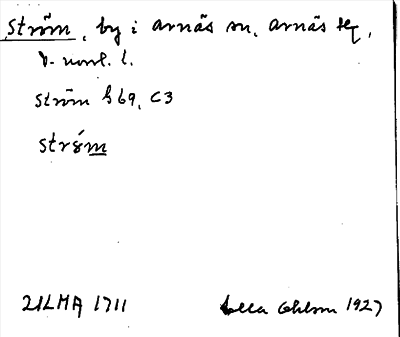 Ström, by i Arnäs sn, Arnäs tg,
V-norrl. l.
Ström G 69, C3
strø̀m
21LMA 1711 Ella Ohlson 1927